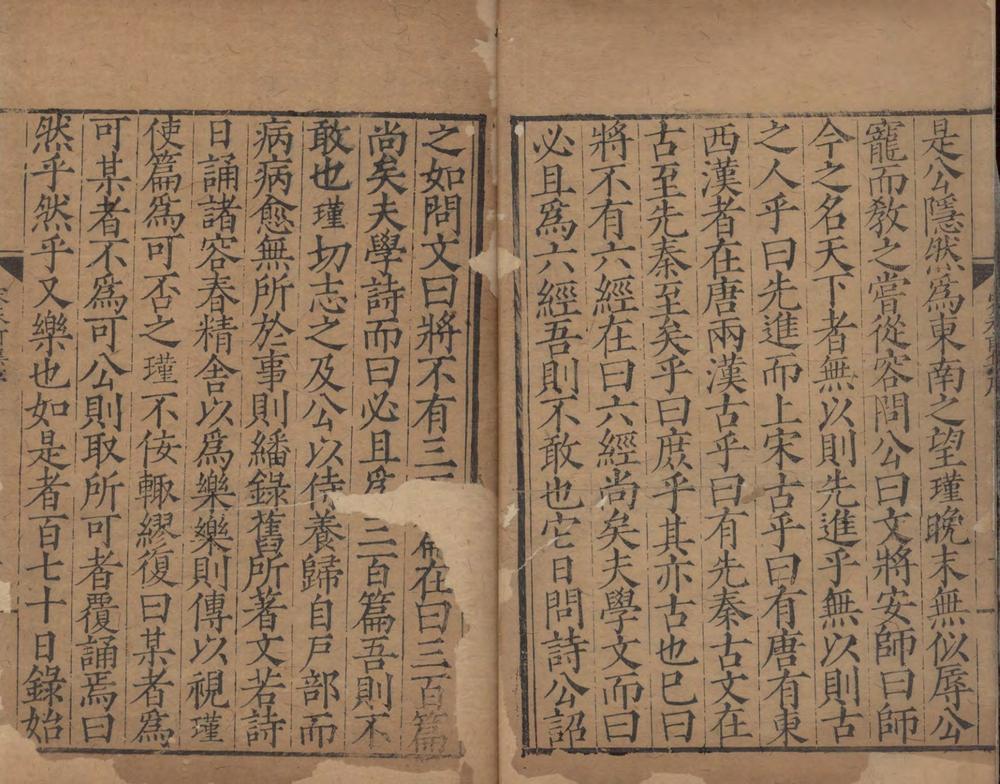 是公隱然爲東南之望瑾晚末無似辱公
寵而敎之嘗從容問公曰文將安師曰師
今之名天下者無以則先進乎無以則古
之人乎曰先進而上宋古乎曰有唐有東
西漢者在唐兩漢古乎曰有先秦古文在
古至先秦至矣乎曰庶乎其亦古也已曰
將不有六經在曰六經尚矣夫學文而曰
必且爲六經吾則不敢也它日問詩公詔
之如問文曰將不有三在曰三百篇
尚矣夫學詩而曰必且爲三百篇吾則不
敢也瑾切志之及公以侍養歸自戶部而
病病愈無所於事則繙錄舊所著文若詩
日誦諸容春精舍以爲樂樂則傳以視瑾
使篇爲可否之瑾不佞輙繆復曰某者爲
可某者不爲可公則取所可者覆誦焉曰
然乎然乎又樂也如是者百七十日錄始